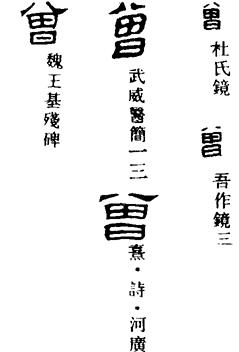 曾
杜氏鏡
曾
吾作鏡三
曾
武威醫簡一三
曾
熹・詩・河廣
曾
魏王基殘碑